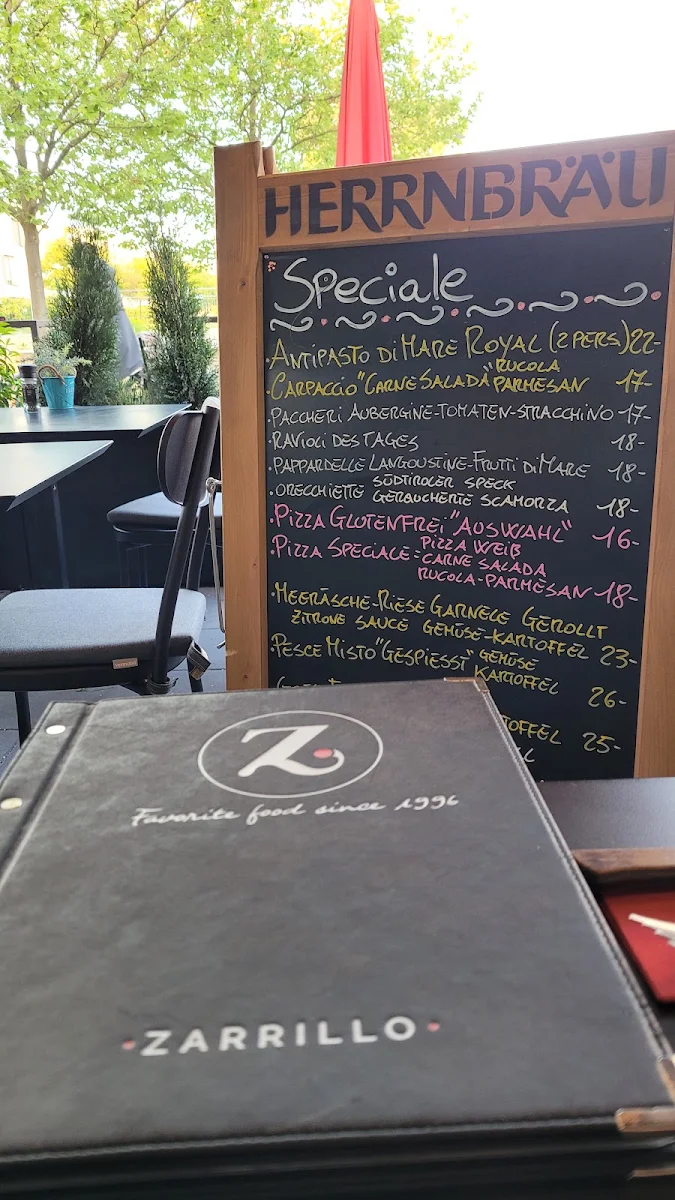 HERRNBRÄU
Speciale
·ANTIPASTO DI MARE ROYAL (2 PERS) 22-
·CARPACCIO "CARNE SALADA" RUCOLA PARMESAN 17-
·PACCHERI AUBERGINE-TOMATEN-STRACCHINO 17-
·RAVIOLI DES TAGES 18-
·PAPPARDELLE LANGOUSTINE-FRUTTI DI MARE 18-
·ORECCHIETTE SÜDTIROLER SPECK GERÄUCHERTE SCAMORZA 18-
·PIZZA GLUTENFREI "AUSWAHL" 16-
·PIZZA SPECIALE: PIZZA WEIß
CARNE SALADA
RUCOLA-PARMESAN 18-
·MEERÄSCHE-RIESE GARNELE GEROLLT
ZITRONE SAUCE GEMÜSE-KARTOFFEL 23-
·PESCE MISTO "GESPIESST" GEMÜSE
KARTOFFEL 26-
25-
Z
Favorite food since 1996
·ZARRILLO·